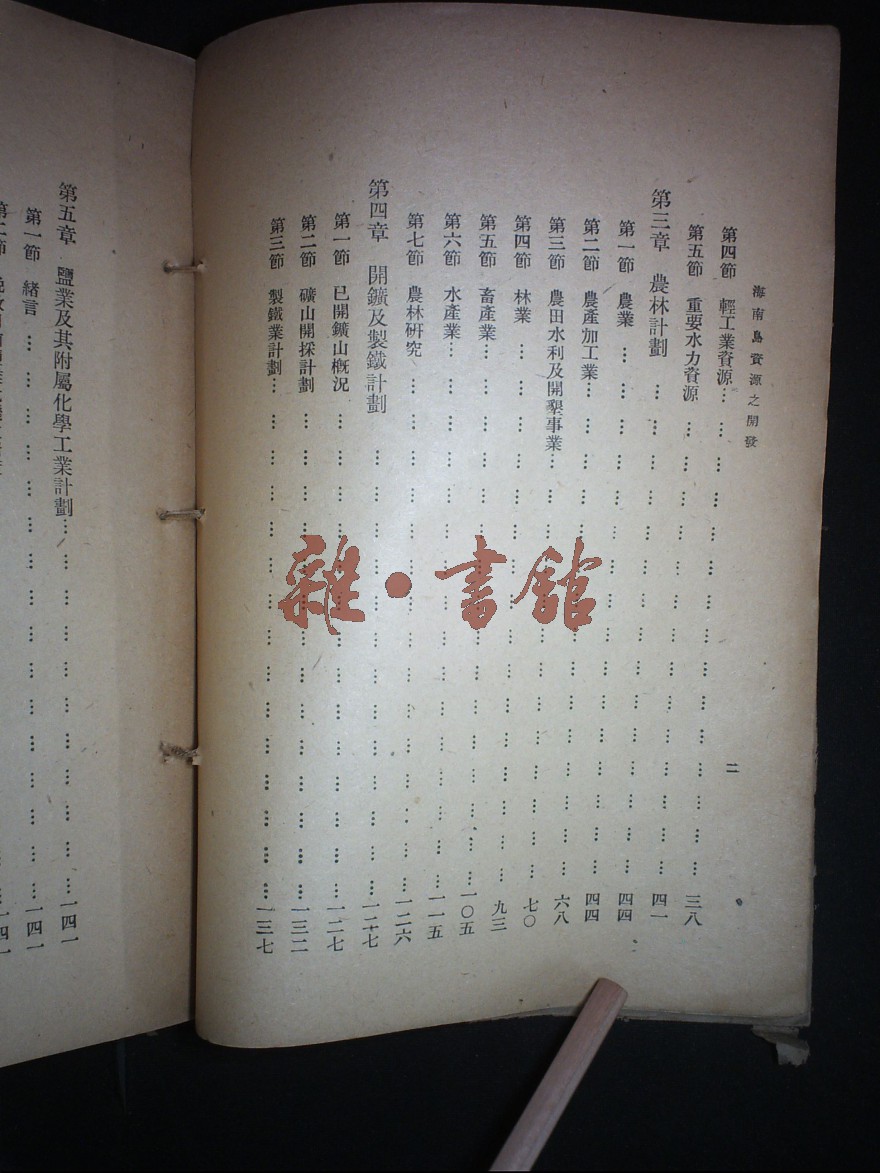 海南島資源之開發
二
第四節 輕工業資源………三八
第五節 重要水力資源………四一
第三章 農林計劃………四四
第一節 農業………四四
第二節 農產加工業………六八
第三節 農田水利及開墾事業………七〇
第四節 林業………九三
第五節 畜產業………一〇五
第六節 水產業………一一五
第七節 農林研究………一二六
第四章 開鑛及製鐵計劃………一二七
第一節 已開鑛山概況………一二七
第二節 礦山開採計劃………一三二
第三節 製鐵業計劃………一三七
第五章 鹽業及其附屬化學工業計劃………一四一
第一節 緒言………一四一
第二節
一四一
雜·書館